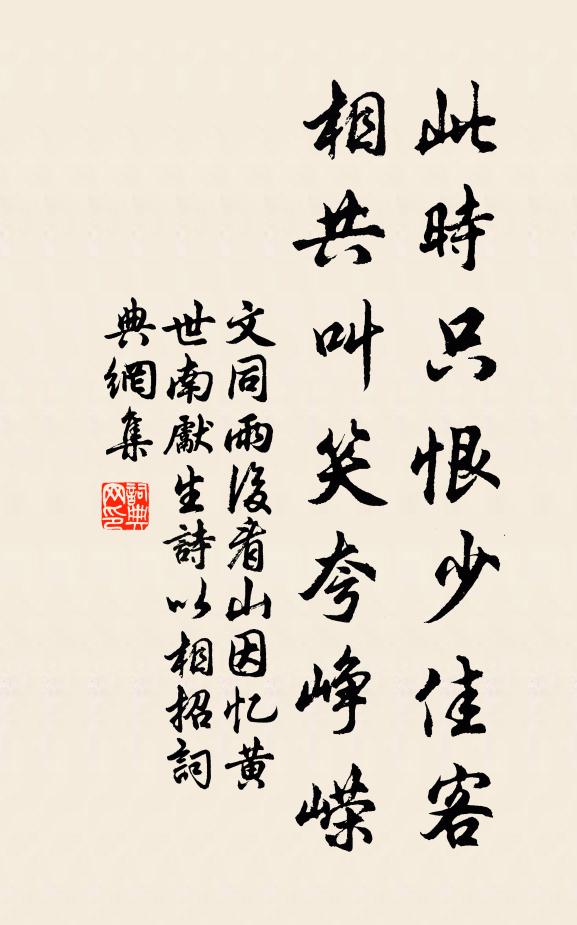 此時只恨少佳客
相共叫笑夸峥嵘
文同雨後看山因忆黄
世南獻生詩以相招詞
典網集
詞典
网印